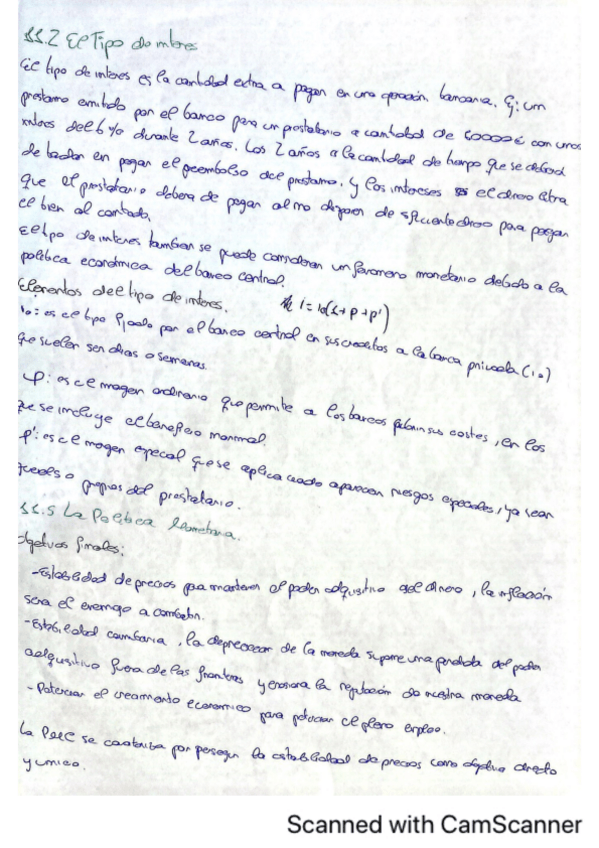 11.2 El Tipo de interes
El tipo de interes es la cantidad extra a pagar en una operación bancaria. Ej: un
prestamo emitido por el banco para un prestatario a cantidad de 60000€ con unos
interes del 6% durante 2 años. Los 2 años a la cantidad de tiempo que se debera
de tardar en pagar el reembolso del prestamo. y los intereses es el dinero extra
que el prestatario debera de pagar al no disponer de suficiente dinero para pagar
el bien al contado.
El tipo de interes tambien se puede considerar un fenomeno monetario debido a la
politica económica del banco central.
Elementos del tipo de interes. i = io(1+p+p')
io: es el tipo fijado por el banco central en sus creditos a la banca privada (io)
que suelen ser dias o semanas.
p: es el margen ordinario que permite a los bancos cubrir sus costes, en los
que se incluye el beneficio normal.
p': es el margen especial que se aplica cuando aparecen riesgos especiales, ya sean
o propios del prestatario.
11.5 La Politica Monetaria.
Objetivos finales:
-Estabilidad de precios para mantener el poder adquisitivo del dinero, la inflación
sera el enemigo a combatir.
-Estabilidad cambiaria, la depreciacion de la moneda supone una perdida del poder
adquisitivo fuera de las fronteras y erosiona la reputación de nuestra moneda
-Potenciar el crecimiento economico para potenciar el pleno empleo.
La PMC se caracteriza por perseguir la estabilidad de precios como objetivo directo
y unico.
Scanned with CamScanner